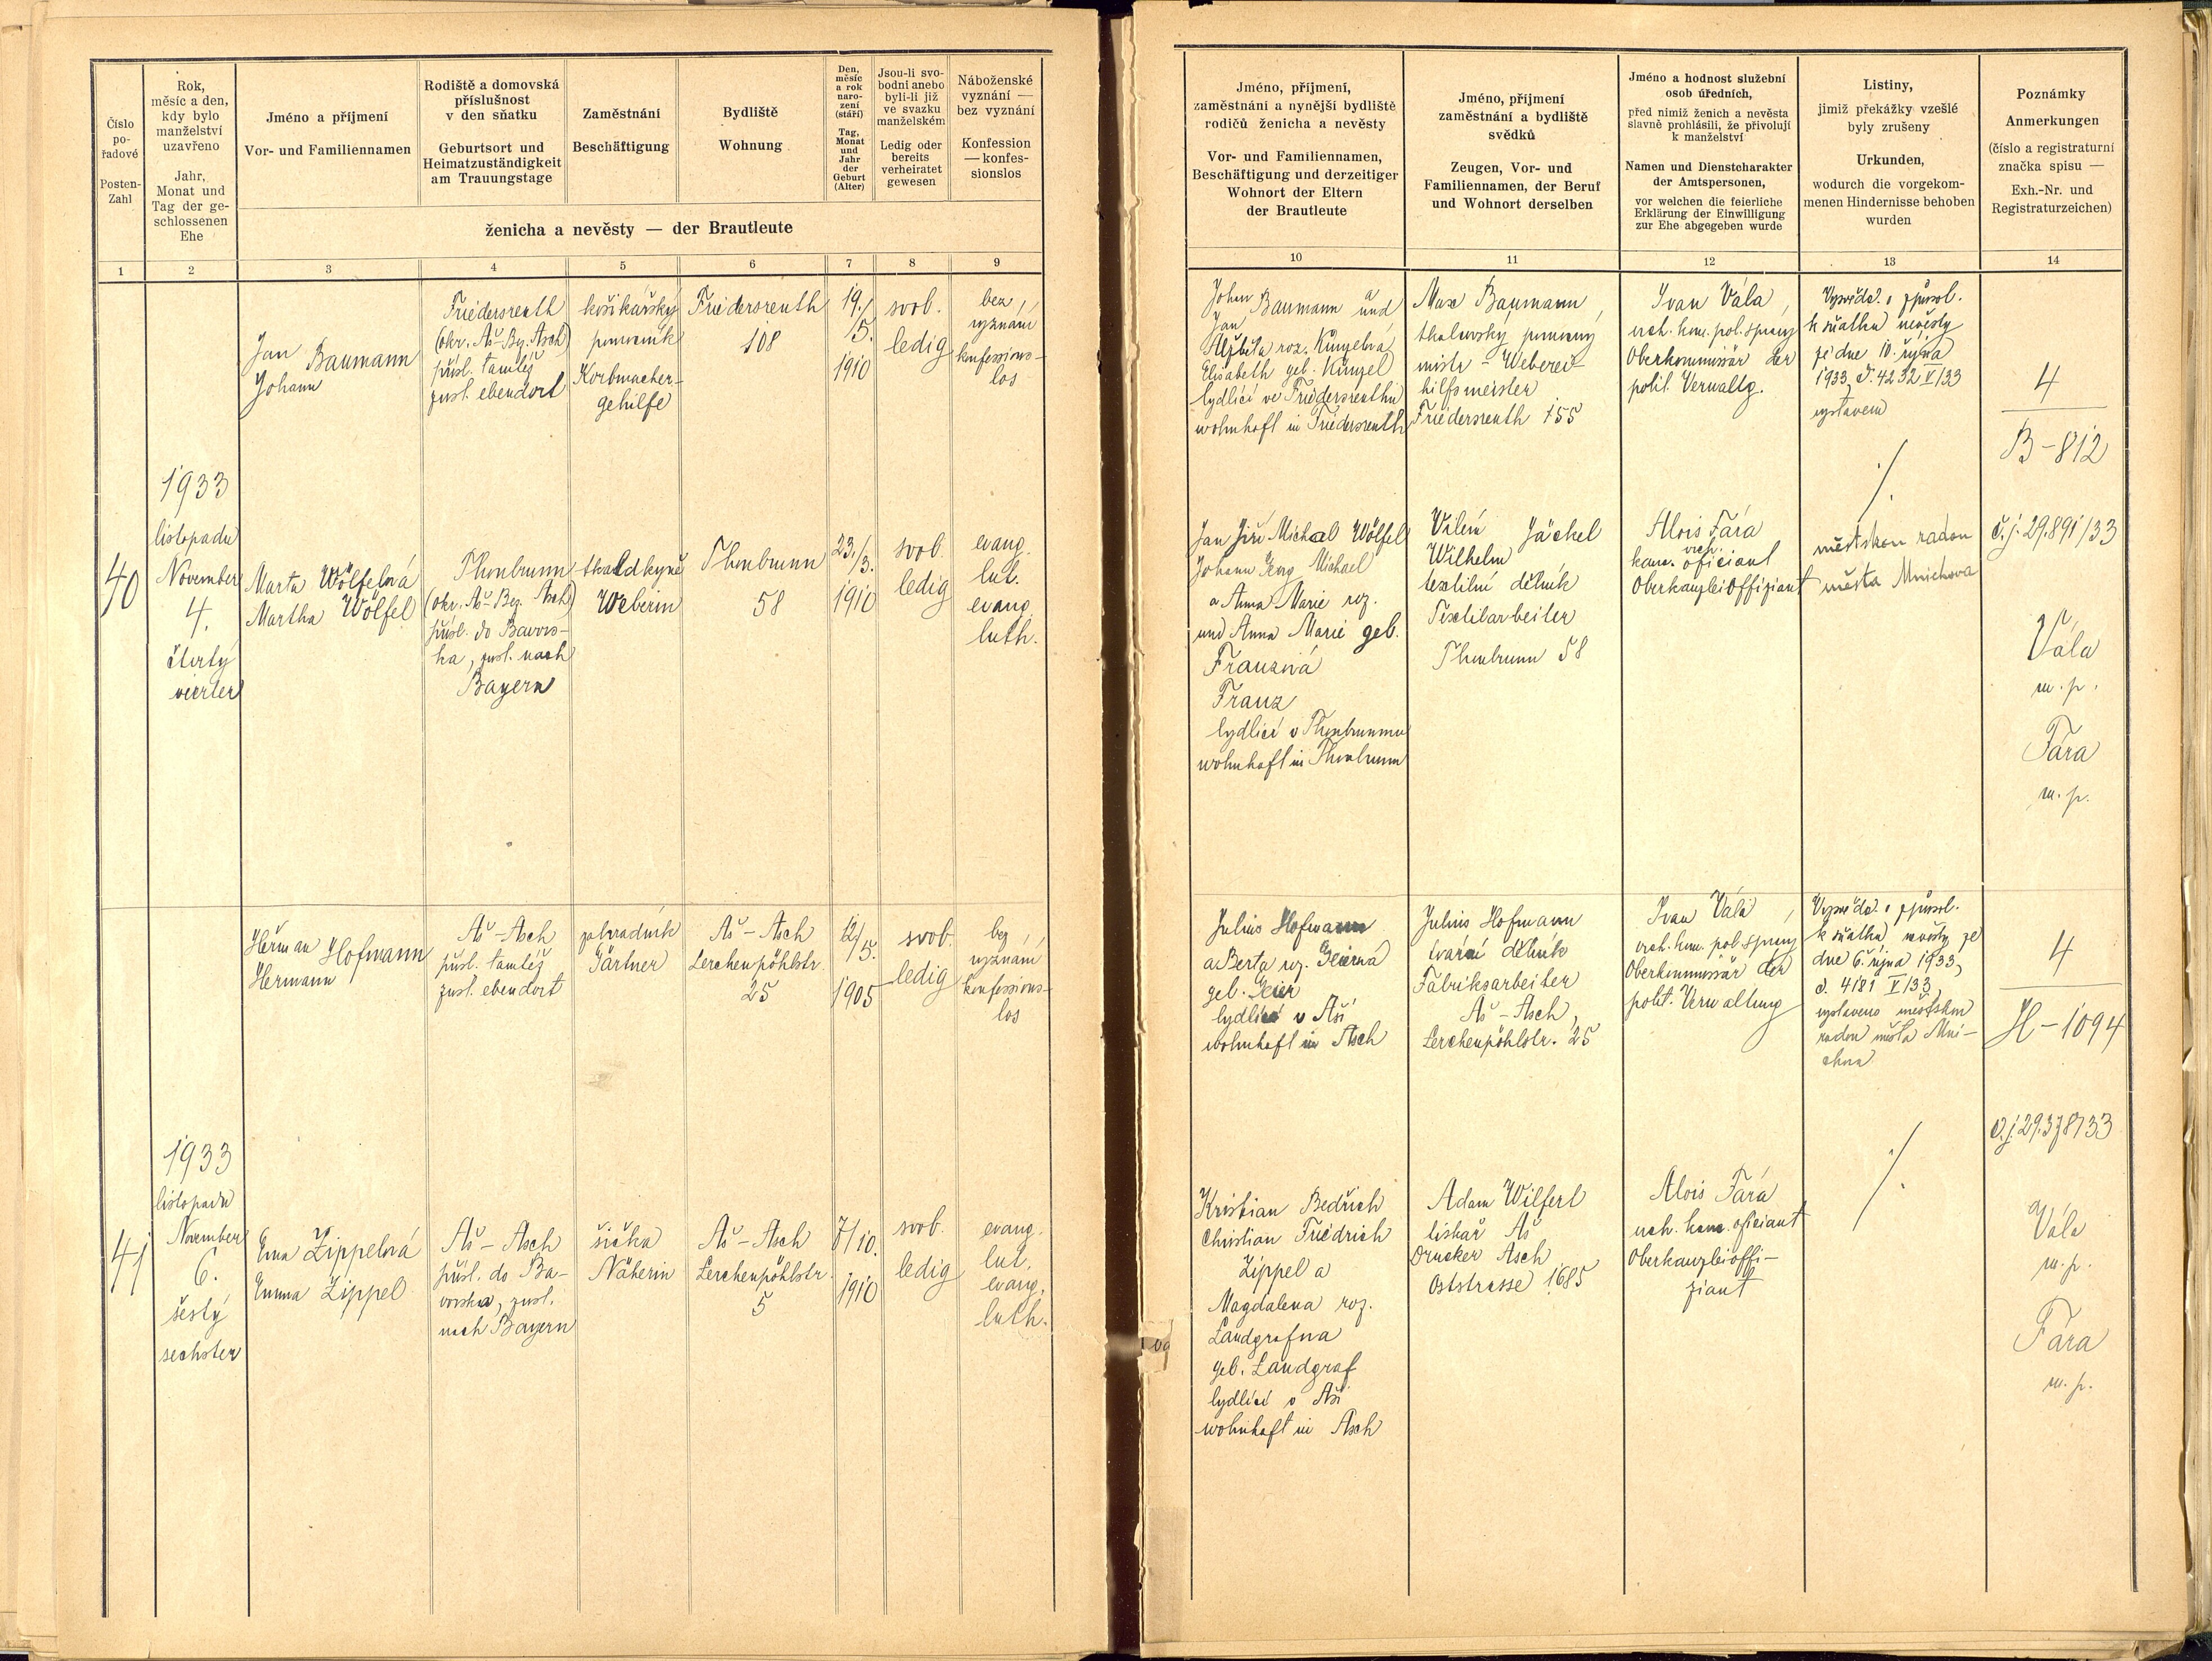 Číslo
po-
řadové
Posten-
Zahl
Rok,
měsíc a den,
kdy bylo
manželství
uzavřeno
Jahr,
Monat und
Tag der ge-
schlossenen
Ehe
Jméno a příjmení
Vor- und Familiennamen
Rodiště a domovská
příslušnost
v den sňatku
Geburtsort und
Heimatzuständigkeit
am Trauungstage
Zaměstnání
Beschäftigung
Bydliště
Wohnung
Den,
měsíc
a rok
naro-
zení
(stáří)
Tag,
Monat
und
Jahr
der
Geburt
(Alter)
Jsou-li svo-
bodni anebo
byli-li již
ve svazku
manželském
Ledig oder
bereits
verheiratet
gewesen
Náboženské
vyznání —
bez vyznání
Konfession
— konfes-
sionslos
ženicha a nevěsty — der Brautleute
1 2 3 4 5 6 7 8 9
Jméno, příjmení,
zaměstnání a nynější bydliště
rodičů ženicha a nevěsty
Vor- und Familiennamen,
Beschäftigung und derzeitiger
Wohnort der Eltern
der Brautleute
Jméno, příjmení
zaměstnání a bydliště
svědků
Zeugen, Vor- und
Familiennamen, der Beruf
und Wohnort derselben
Jméno a hodnost služební
osob úředních,
před nimiž ženich a nevěsta
slavně prohlásili, že přivolují
k manželství
Namen und Dienstcharakter
der Amtspersonen,
vor welchen die feierliche
Erklärung der Einwilligung
zur Ehe abgegeben wurde
Listiny,
jimiž překážky vzešlé
byly zrušeny
Urkunden,
wodurch die vorgekom-
menen Hindernisse behoben
wurden
Poznámky
Anmerkungen
(číslo a registraturní
značka spisu —
Exh.-Nr. und
Registraturzeichen)
10 11 12 13 14
40
1933
listopadu
November
4.
čtvrtý
vierter
Jan Baumann
Johann
Friedersreuth
(okr. Aš-Bez. Asch)
přísl. tamtéž
zust. ebendort
košikářský
pomocník
Korbmacher-
gehilfe
Friedersreuth
108
19./
5.
1910
svob.
ledig
bez
vyznání
konfessions-
los
Johan Baumann a und
Jan
Alžběta roz. Künzelová
Elisabeth geb. Künzel
bydlící ve Friedersreuthu
wohnhaft in Friedersreuth
Max Baumann
tkalcovský pomocný
mistr - Weberei-
hilfsmeister
Friedersreuth 155
Ivan Vála,
vrch. kom. pol. správy
Oberkommissär der
polit. Verwaltg.
Vysvědč. o způsob.
k sňatku nevěsty
ze dne 10. října
1933, č. 4232 V/33
vystaveno
4
B-812
Marta Wölfelová
Martha Wölfel
Thonbrunn
(okr. Aš-Bez. Asch)
přísl. do Bavors-
ka, zust. nach
Bayern
tkadlkyně
Weberin
Thonbrunn
58
23./
3.
1910
svob.
ledig
evang.
lut.
evang.
luth.
Jan Jiří Michael Wölfel
Johann Georg Michael
a Anna Marie roz.
und Anna Marie geb.
Franzová
Franz
bydlící v Thonbrunnu
wohnhaft in Thonbrunn
Vilém Jäckel
Wilhelm
textilní dělník
Textilarbeiter
Thonbrunn 58
Alois Fára
vrch.
kanc. oficiant
Oberkanzleioffiziant
městskou radou
města Mnichova
č.j. 29.891/33
Vála
m. p.
Fára
m. p.
41
1933
listopadu
November
6.
šestý
sechster
Heřman Hofmann
Hermann
Aš-Asch
přísl. tamtéž
zust. ebendort
zahradník
Gärtner
Aš-Asch
Lerchenpöhlstr.
25
12/
5.
1905
svob.
ledig
bez
vyznání
konfessions-
los
Julius Hofmann
a Berta roz. Geierová
geb. Geier
bydlící v Aši
wohnhaft in Asch
Julius Hofmann
tovární dělník
Fabriksarbeiter
Aš-Asch,
Lerchenpöhlstr. 25
Ivan Vála,
vrch. kom. pol. správy
Oberkommissär der
polit. Verwaltung
Vysvědč. o způsob.
k sňatku nevěsty ze
dne 6. října 1933,
č. 4181 V/33,
vystaveno městskou
radou města Mni-
chova
4
H-1094
č.j. 29.378/33
Ema Zippelová
Emma Zippel
Aš-Asch
přísl. do Ba-
vorska, zust.
nach Bayern
šička
Näherin
Aš-Asch
Lerchenpöhlstr.
5
7/10.
1910
svob.
ledig
evang.
lut.
evang.
luth.
Kristian Bedřich
Christian Friedrich
Zippel a
Magdalena roz.
Landgrafova
geb. Landgraf
bydlící v Aši
wohnhaft in Asch
Adam Wilfert
tiskař Aš
Drucker Asch
Oststrasse 1685
Alois Fára
vrch. kanc. oficiant
Oberkanzleioffi-
ziant
Vála
m. p.
Fára
m. p.